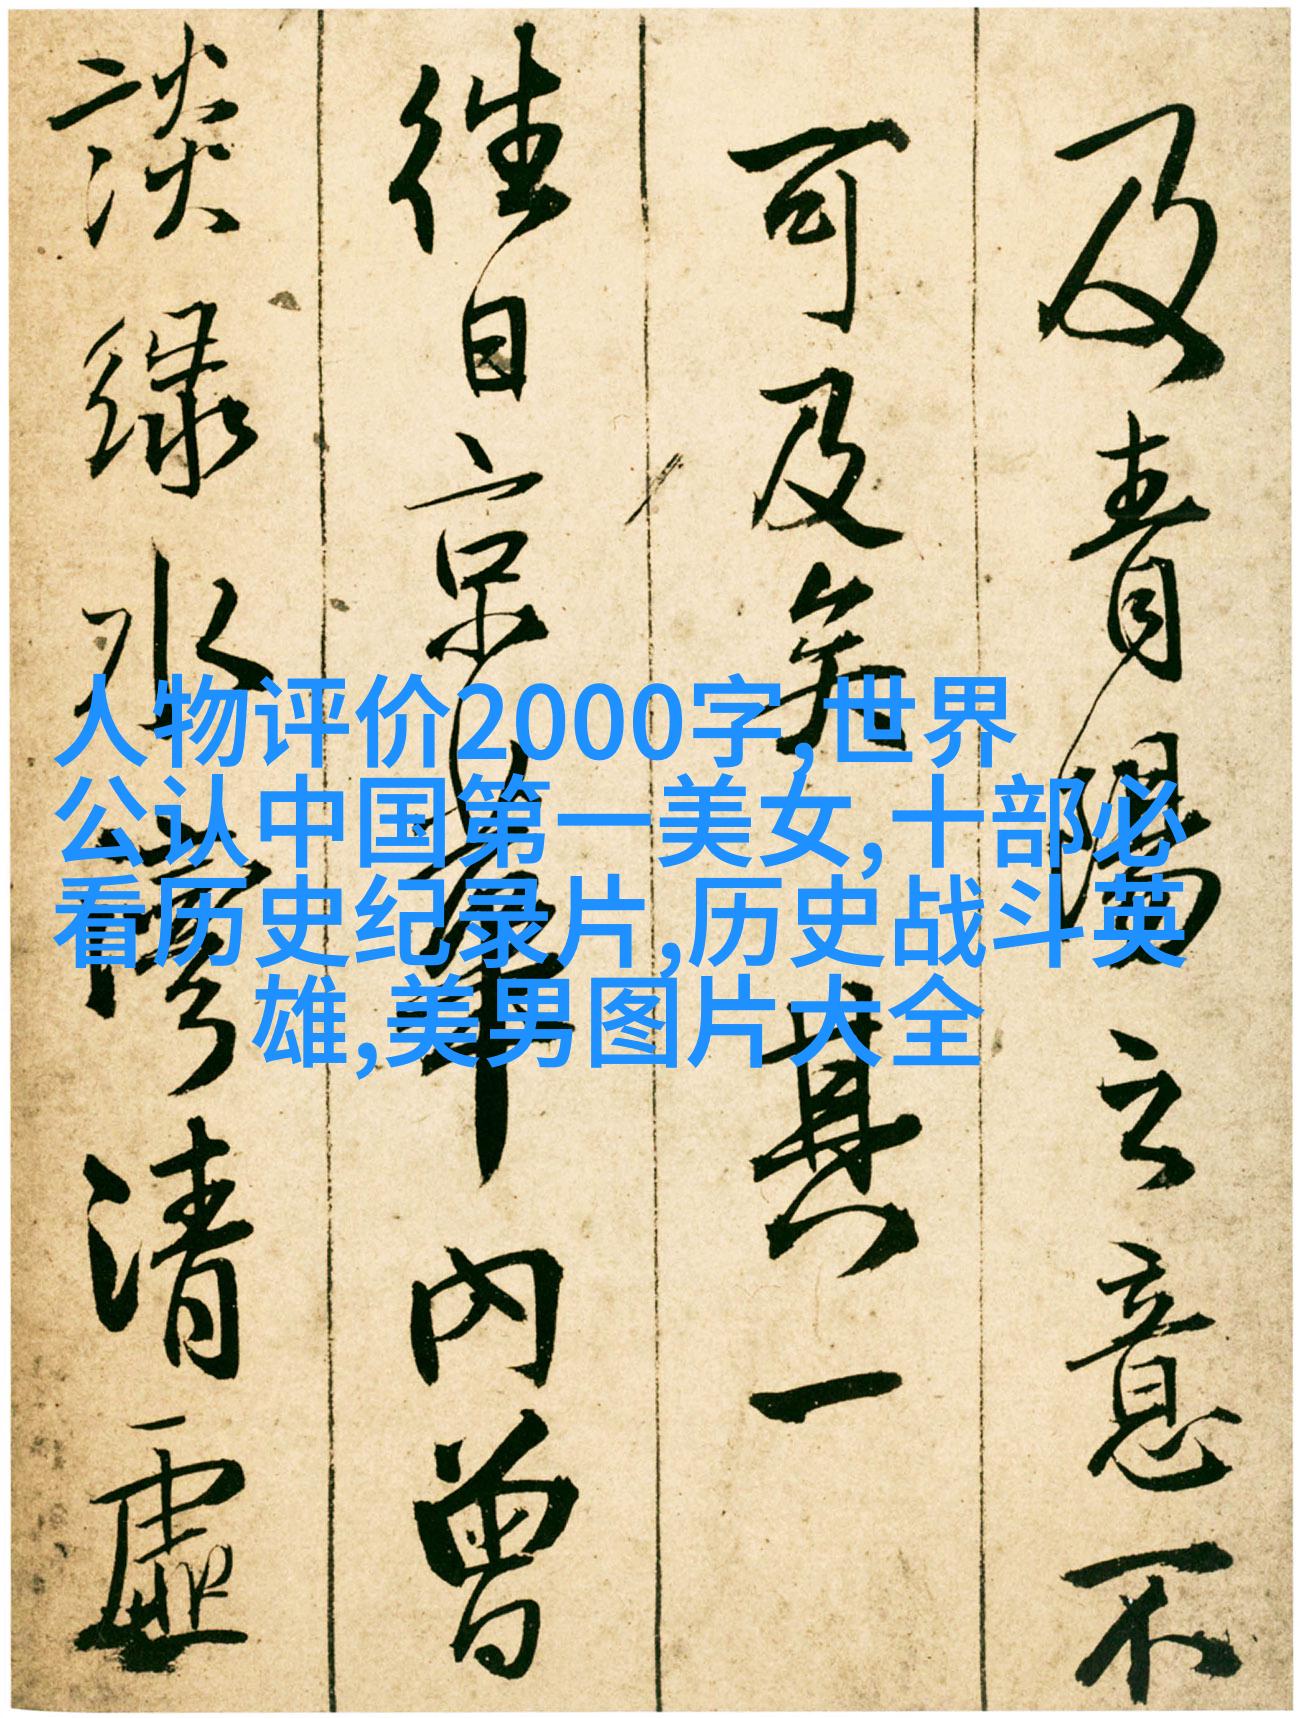 及青陽之意不
可及矣其一
往日京華內曾
談綠水清虛
人物评价2000字,世界
公认中国第一美女,十部必
看历史纪录片,历史战斗英
雄,美男图片大全